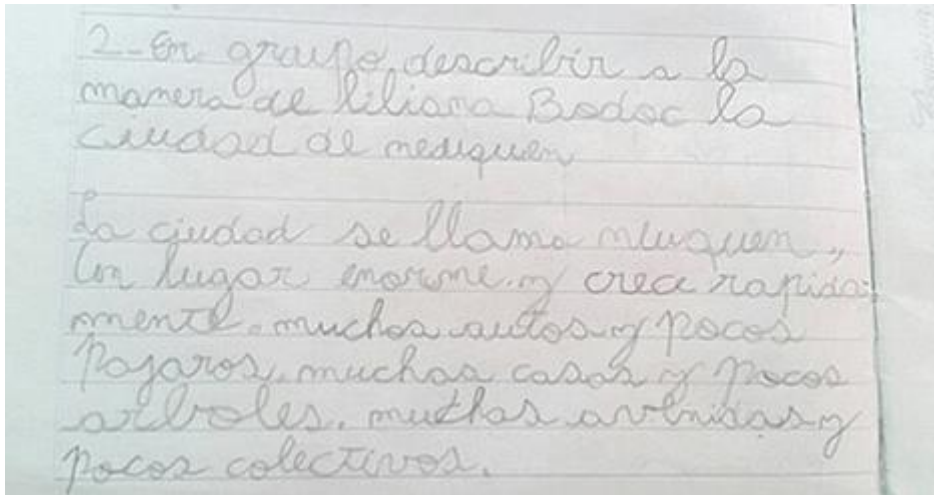 2-En grupo, describir a la
manera de liliana Bodoc la
ciudad de neuquen
La ciudad se llama neuquen,,
Un lugar enorme. y crece rapida-
mente. muchos autos y pocos
pajaros. muchas casas y pocos
arboles. muchas avenidas y
pocos colectivos.